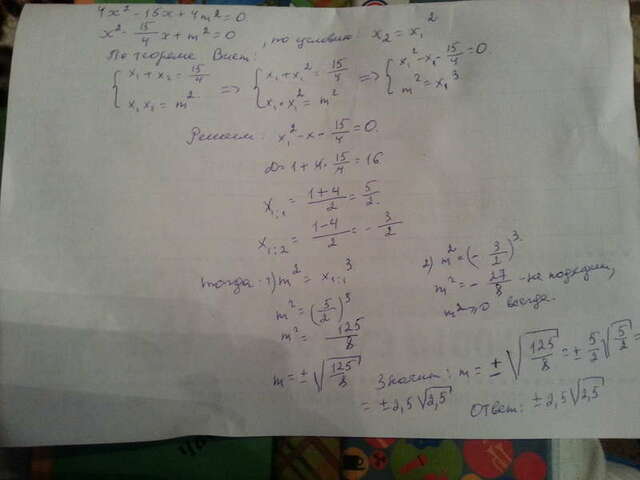 4x² - 15x + 4m² = 0
x² - 15/4 x + m² = 0, по условию: x₂ = x₁²
По теореме Виета:
{ x₁ + x₂ = 15/4 => { x₁ + x₁² = 15/4 => { x₁² - x₁ - 15/4 = 0
{ x₁x₂ = m² => { x₁ · x₁² = m² => { m² = x₁³
Решаем: x₁² - x - 15/4 = 0.
D = 1 + 4 · 15/4 = 16
x₁;₁ = (1+4)/2 = 5/2
x₁;₂ = (1-4)/2 = - 3/2
тогда 1) m² = x₁;₁³
m² = (5/2)³
m² = 125/8
m = ± √(125/8)
2) m² = (- 3/2)³
m² = - 27/8 - не подходит,
m² ≥ 0 всегда.
Значит: m = ± √(125/8) = ± 5/2 √(5/2) =
= ± 2,5 √(2,5)
Ответ: ± 2,5 √(2,5)